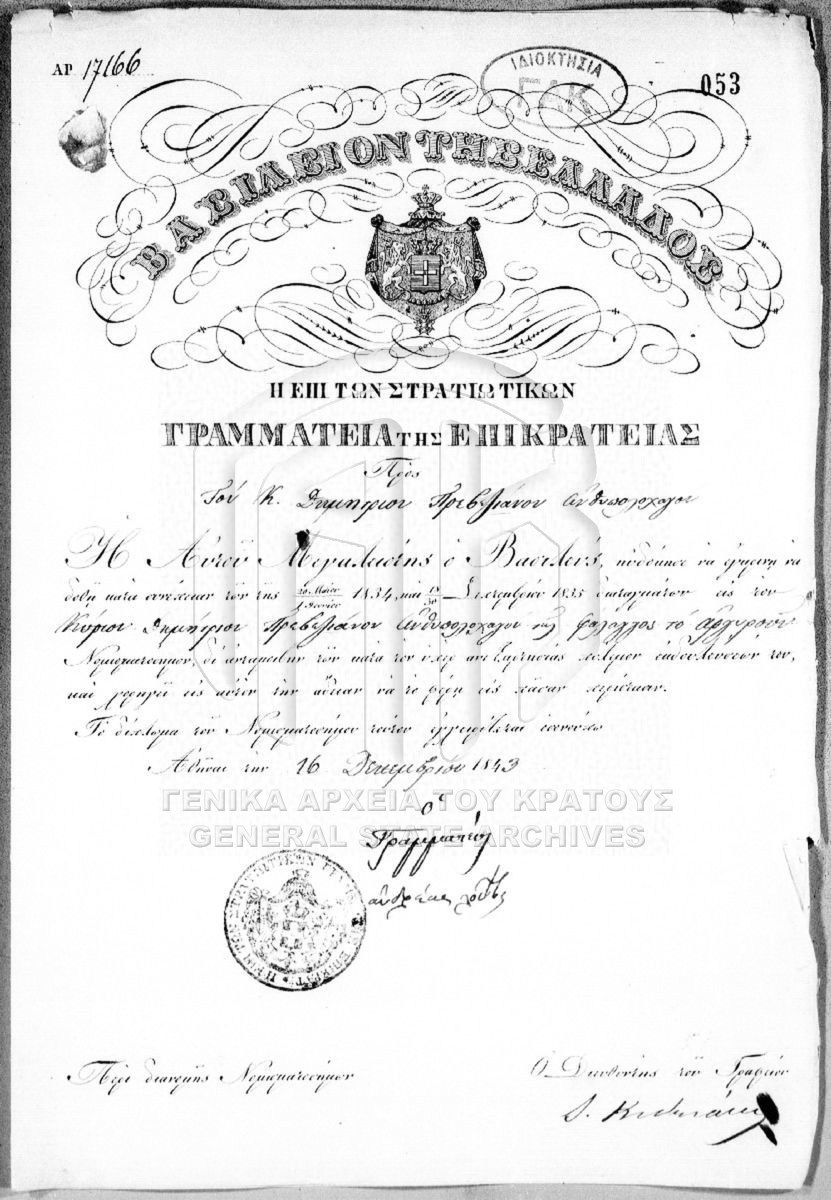 ΑΡ 17166
ΙΔΙΟΚΤΗΣΙΑ
ΓΑΚ
053
ΒΑΣΙΛΕΙΟΝ ΤΗΣ ΕΛΛΑΔΟΣ
Η ΕΠΙ ΤΩΝ ΣΤΡΑΤΙΩΤΙΚΩΝ
ΓΡΑΜΜΑΤΕΙΑ ΤΗΣ ΕΠΙΚΡΑΤΕΙΑΣ
Πρὸς
Τὸν Κ. Δημήτριον Πρεβεζιάνον Ἀνθυπολοχαγόν
Ἡ Αὐτοῦ Μεγαλειότης ὁ Βασιλεὺς, ηὐδόκησε νὰ ἐγκρίνῃ νὰ
δοθῇ κατὰ συνέχειαν τῶν τῆς 20 Μαΐου / 1 Ἰουνίου 1834, καὶ 18 / 30 Σεπτεμβρίου 1835 διαταγμάτων εἰς τὸν
Κύριον Δημήτριον Πρεβεζιάνον Ἀνθυπολοχαγὸν τῆς φάλαγγος τὸ ἀργυροῦν
Νομισματόσημον, δι' ἀνταμοιβὴν τῶν κατὰ τὸν ὑπὲρ ἀνεξαρτησίας πόλεμον ἐκδουλεύσεών του,
καὶ χορηγεῖ εἰς αὐτὸν τὴν ἄδειαν νὰ τὸ φέρῃ εἰς πᾶσαν περίστασιν.
Τὸ δίπλωμα τοῦ Νομισματοσήμου τούτου ἐγχειρίζεται ἐσωκλείστως
Ἀθῆναι τὴν 16 Δεκεμβρίου 1843
ΓΕΝΙΚΑ ΑΡΧΕΙΑ ΤΟΥ ΚΡΑΤΟΥΣ
GENERAL STATE ARCHIVES
Ὁ
Γραμματεὺς
Ἀνδρέας
Περὶ διανομῆς Νομισματοσήμων
Ὁ Διευθυντὴς τοῦ Γραφείου